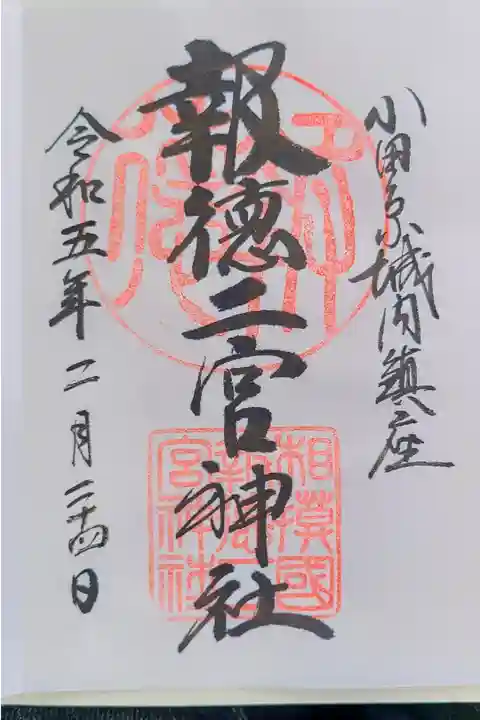 小田原城内鎮座
報徳二宮神社
相模國
報徳二
宮神社
令和五年二月二十四日